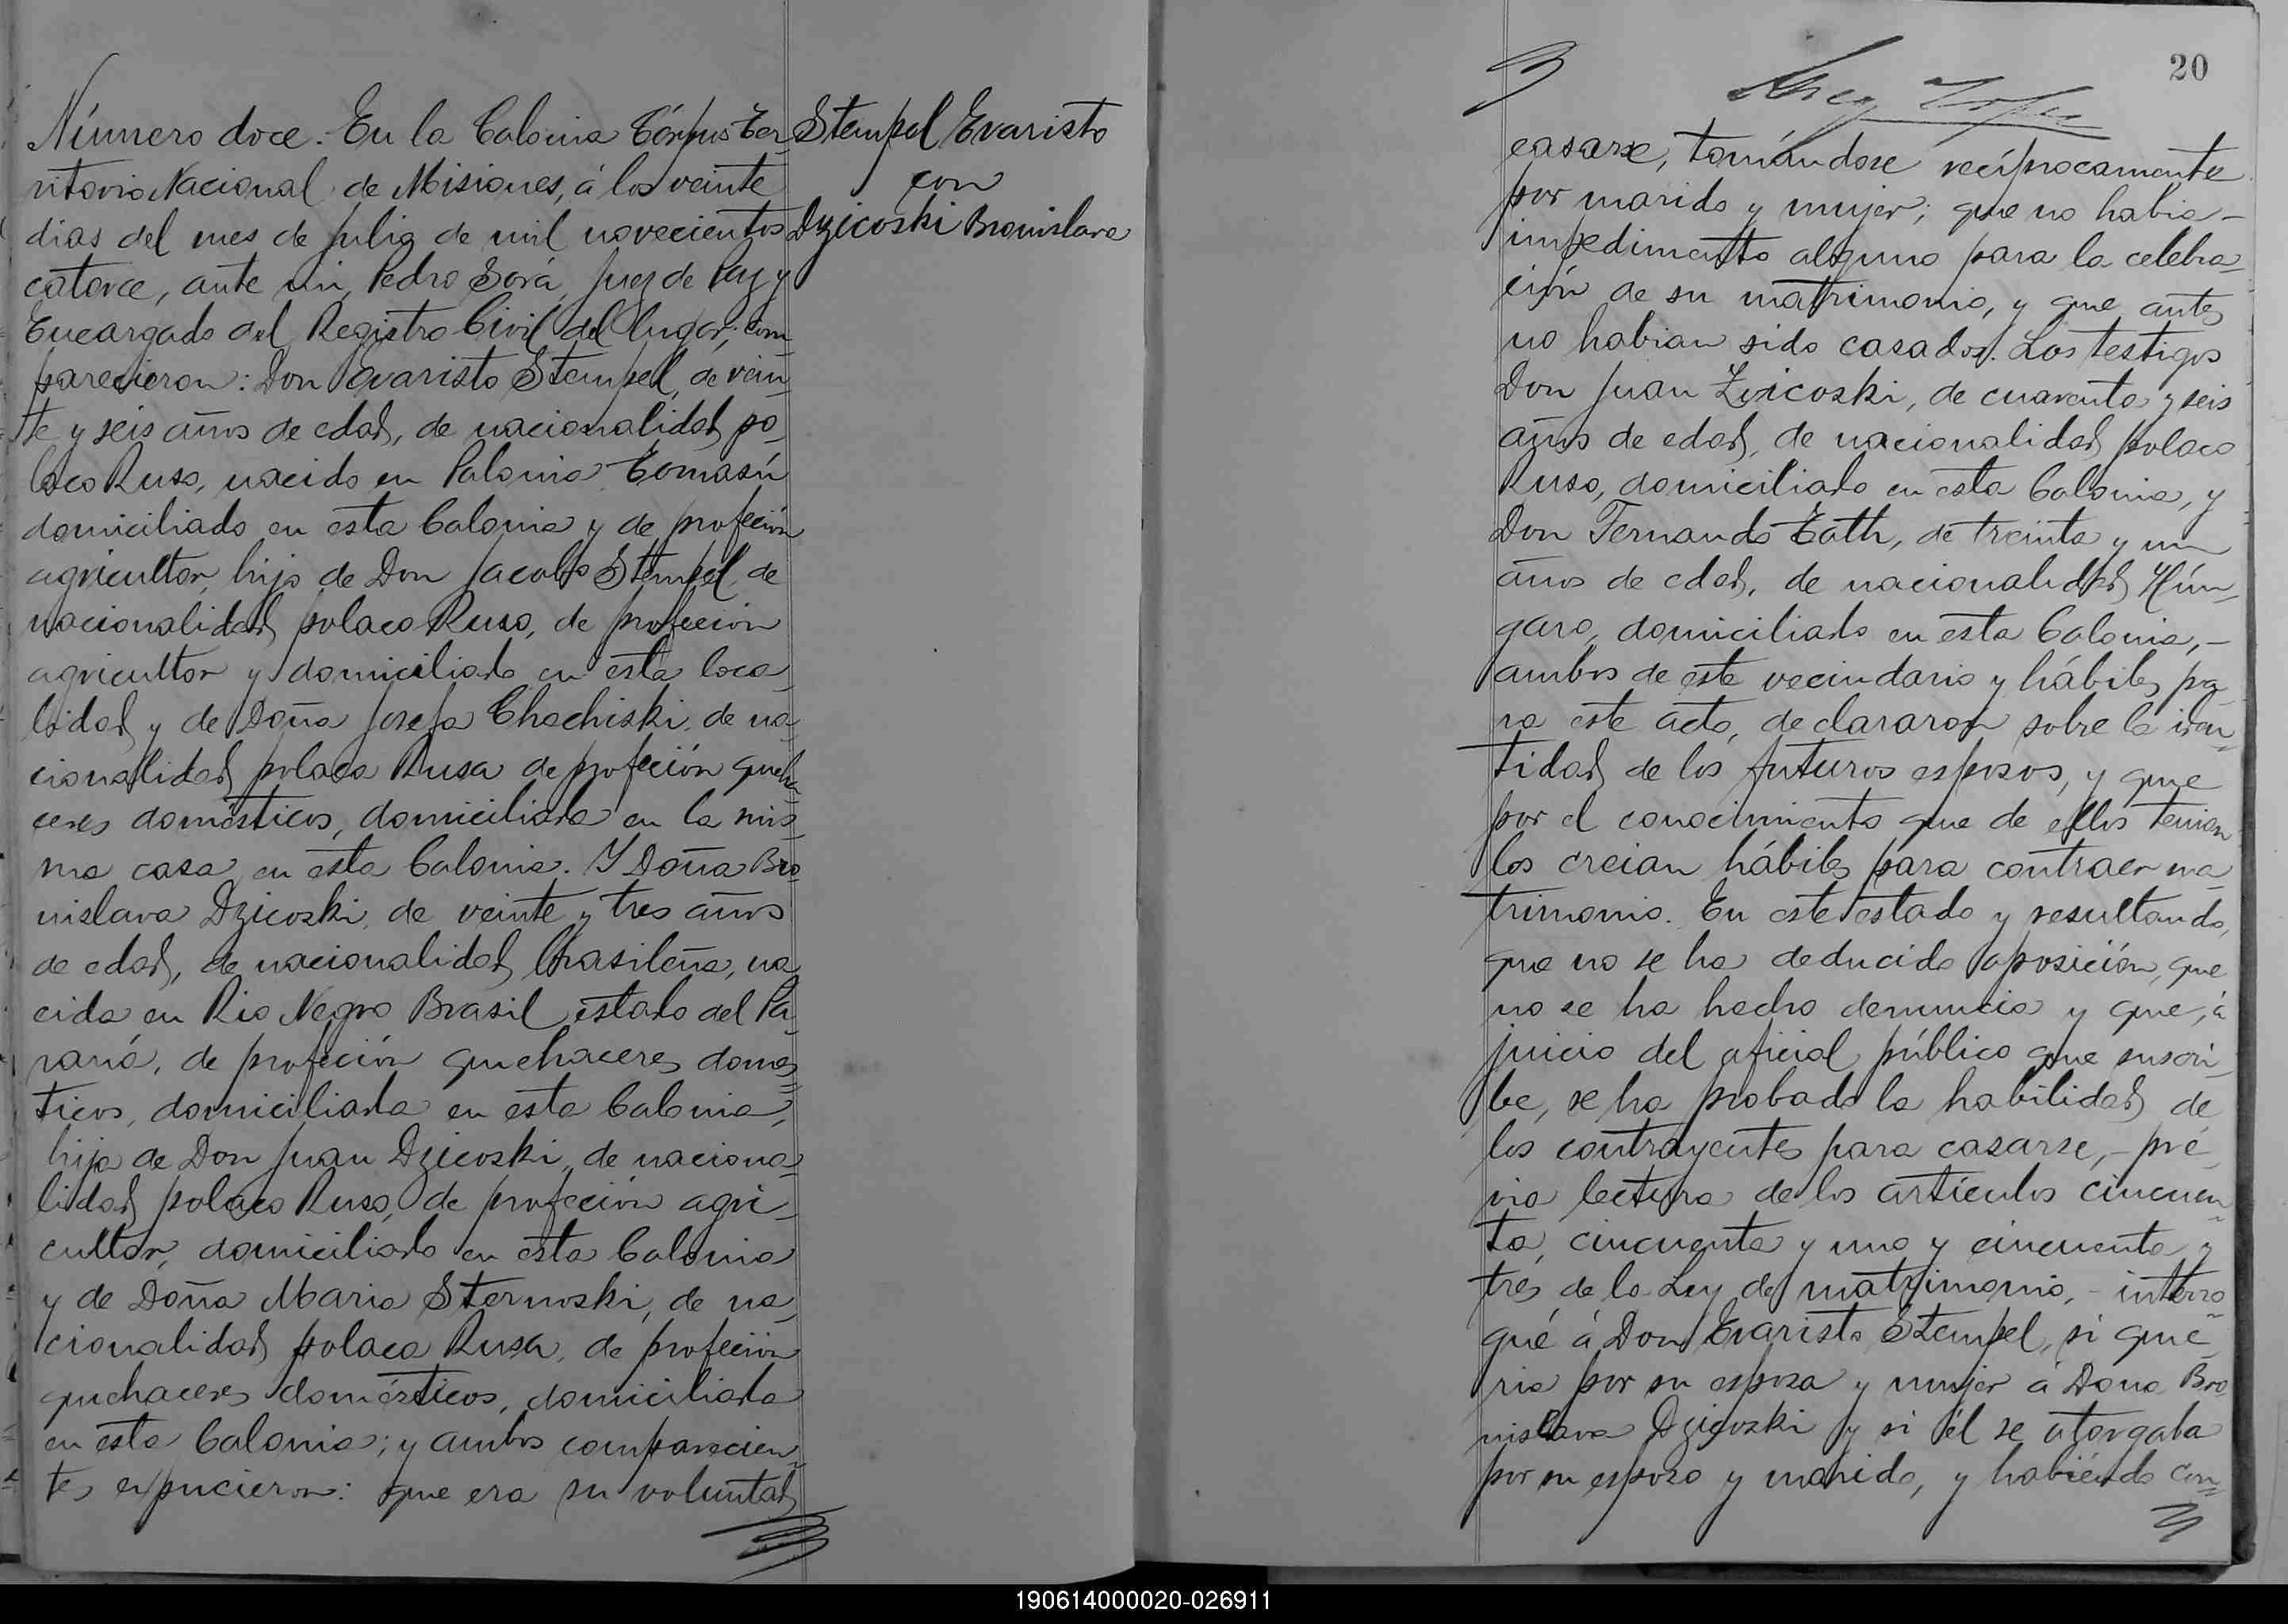 Número doce. En la Colonia Córpus Ter
ritorio Nacional de Misiones, á los veinte
dias del mes de Julio de mil novecientos
catorce, ante mi, Pedro Sorá, Juez de Paz y
Encargado del Registro Civil del lugar; com
parecieron: Don Evaristo Stempel, de vein
te y seis años de edad, de nacionalidad po
laco Ruso, nacido en Polonia Tomasú
domiciliado en esta Colonia y de profeción
agricultor, hijo de Don Jacobo Stempel, de
nacionalidad polaco Ruso, de profeción
agricultor y domiciliado en esta loca
lidad y de Doña Josefa Chachiski, de na
cionalidad polaca Rusa de profeción queha
ceres domésticos, domiciliada en la mis
ma casa en esta Colonia. Y Doña Bro
nislava Dzicoski, de veinte y tres años
de edad, de nacionalidad brasileña, na
cida en Rio Negro Brasil estado del Pa
raná, de profeción quehaceres domes
ticos, domiciliada en esta Colonia,
hija de Don Juan Dzicoski, de naciona
lidad polaco Ruso, de profeción agri
cultor, domiciliado en esta Colonia
y de Doña Maria Sternoski, de na
cionalidad polaca Rusa, de profeción
quehaceres domésticos, domiciliada
en esta Colonia; y ambos comparecien
tes expucieron: que era su voluntad
Stempel Evaristo
con
Dzicoski Bronislava
20
casarse, tomándose recíprocamente
por marido y mujer; que no habia
impedimento alguno para la celebra
ción de su matrimonio, y que antes
no habian sido casados. Los testigos
Don Juan Zvicoski, de cuarenta y seis
años de edad, de nacionalidad polaco
Ruso, domiciliado en esta Colonia, y
Don Fernando Toth, de treinta y un
años de edad, de nacionalidad Hún
garo, domiciliado en esta Colonia,
ambos de este vecindario y hábiles pa
ra este acto, declararon sobre la iden
tidad de los futuros esposos, y que
por el conocimiento que de ellos tenian
los creian hábiles para contraer ma
trimonio. En este estado y resultando,
que no se ha deducido oposición, que
no se ha hecho denuncia y que, á
juicio del oficial público que suscri
be, se ha probado la habilidad de
los contrayentes para casarse, pré
via lectura de los artículos cincuen
ta, cincuenta y uno y cincuenta y
tres de la Ley de matrimonio, interro
gué á Don Evaristo Stempel, si que
ria por su esposa y mujer á Doña Bro
nislava Dzicoski y si él se otorgaba
por su esposo y marido, y habiéndo con
190614000020-026911